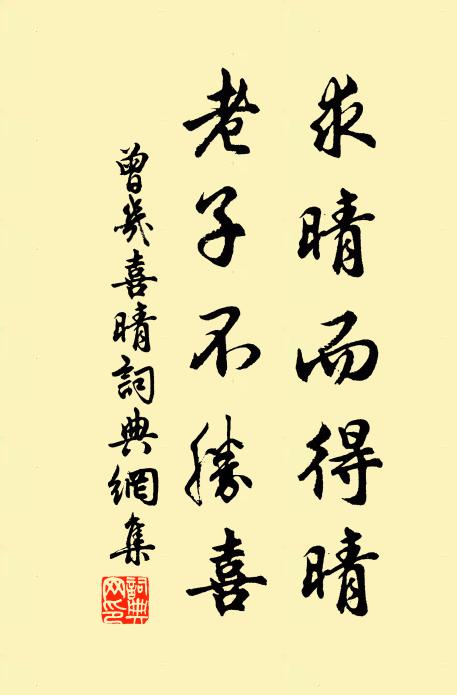 求晴而得晴
老子不勝喜
曾幾喜晴詞典網集
詞典網印